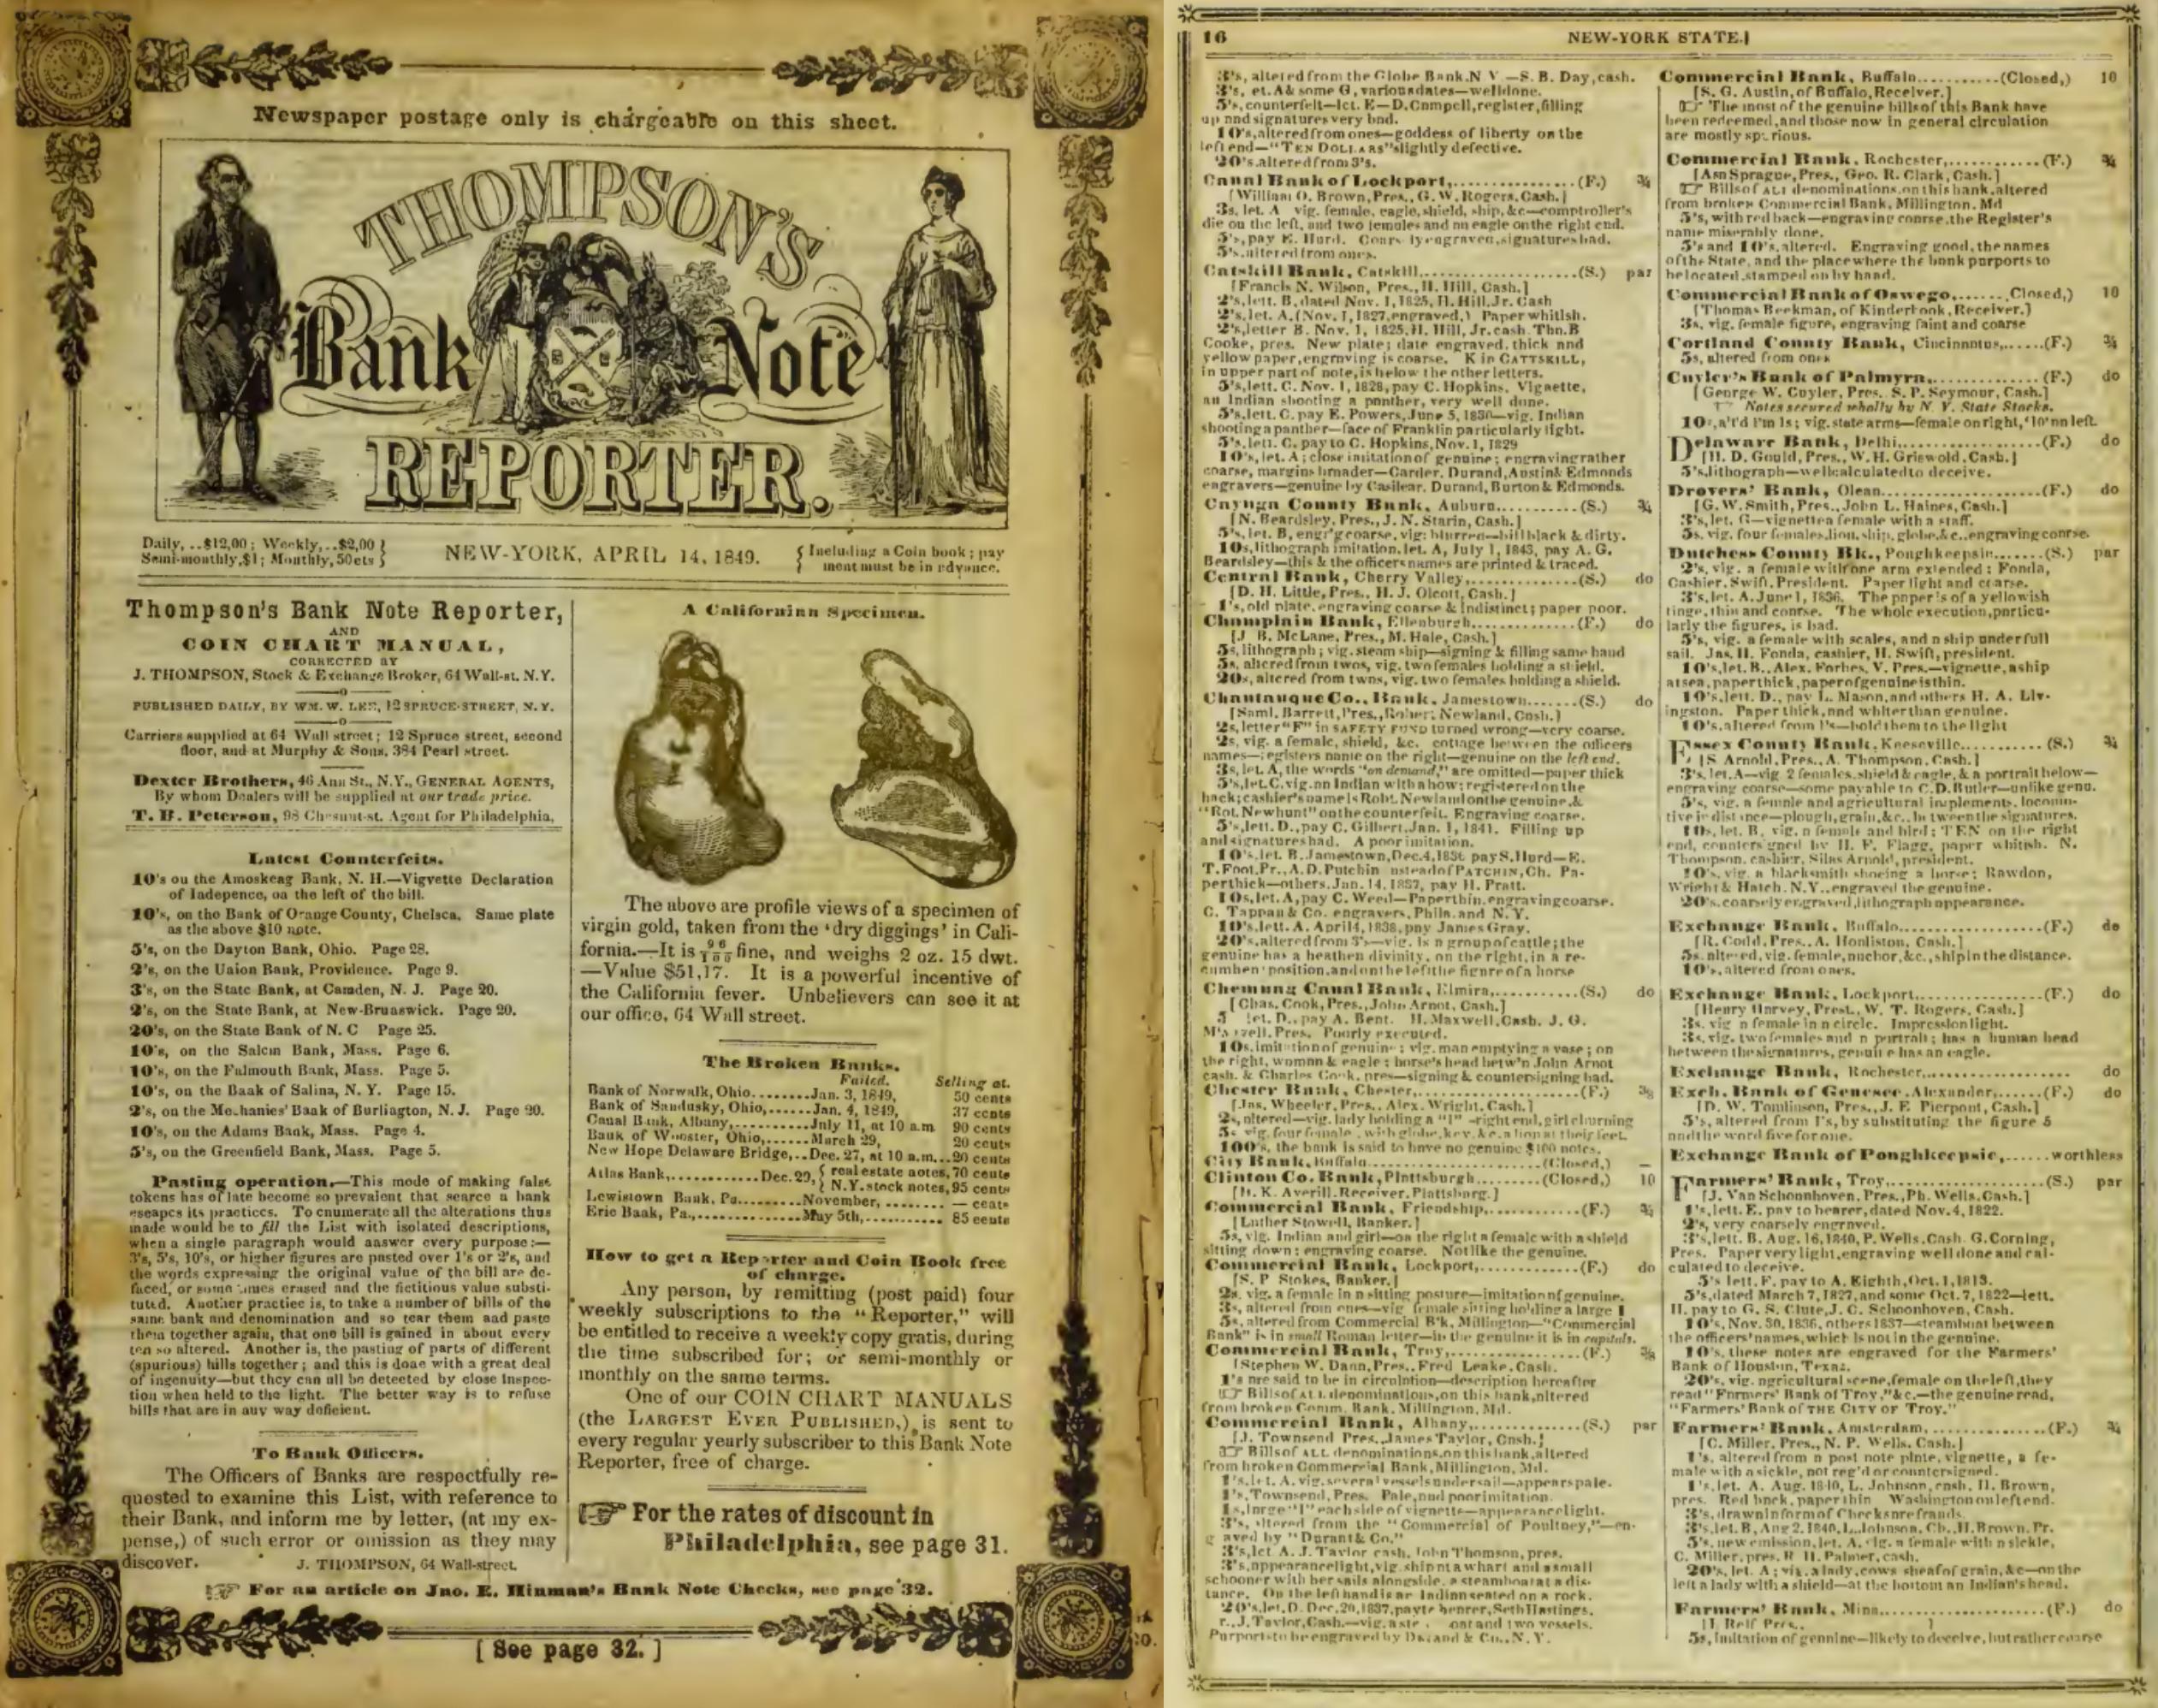 Newspaper postage only is chargeable on this sheet.
THOMPSON'S
Bank Note
REPORTER.
Daily, ..$12,00; Weekly,..$2,00
Semi-monthly,$1; Monthly,50cts
NEW-YORK, APRIL 14, 1849.
Including a Coin book; pay
ment must be in advance.
Thompson's Bank Note Reporter,
AND
COIN CHART MANUAL,
CORRECTED BY
J. THOMPSON, Stock & Exchange Broker, 64 Wall-st. N.Y.
PUBLISHED DAILY, BY WM. W. LEE, 12 SPRUCE-STREET, N.Y.
Carriers supplied at 64 Wall street; 12 Spruce street, second
floor, and at Murphy & Sons, 384 Pearl street.
Dexter Brothers, 46 Ann St., N.Y., GENERAL AGENTS,
By whom Dealers will be supplied at our trade price.
T. B. Peterson, 98 Chesnut-st. Agent for Philadelphia,
Latest Counterfeits.
10's on the Amoskeag Bank, N. H.—Vigvette Declaration
of Indepence, on the left of the bill.
10's, on the Bank of Orange County, Chelsea. Same plate
as the above $10 note.
5's, on the Dayton Bank, Ohio. Page 28.
2's, on the Union Bank, Providence. Page 9.
3's, on the State Bank, at Camden, N. J. Page 20.
2's, on the State Bank, at New-Brunswick. Page 20.
20's, on the State Bank of N. C Page 25.
10's, on the Salem Bank, Mass. Page 6.
10's, on the Falmouth Bank, Mass. Page 5.
10's, on the Bank of Salina, N. Y. Page 15.
2's, on the Mechanics' Bank of Burlington, N. J. Page 20.
10's, on the Adams Bank, Mass. Page 4.
5's, on the Greenfield Bank, Mass. Page 5.
Pasting operation.—This mode of making false
tokens has of late become so prevalent that scarce a bank
escapes its practices. To enumerate all the alterations thus
made would be to fill the List with isolated descriptions,
when a single paragraph would answer every purpose:—
3's, 5's, 10's, or higher figures are pasted over 1's or 2's, and
the words expressing the original value of the bill are de-
faced, or sometimes erased and the fictitious value substi-
tuted. Another practice is, to take a number of bills of the
same bank and denomination and so tear them and paste
them together again, that one bill is gained in about every
ten so altered. Another is, the pasting of parts of different
(spurious) bills together; and this is done with a great deal
of ingenuity—but they can all be detected by close inspec-
tion when held to the light. The better way is to refuse
bills that are in any way deficient.
To Bank Officers.
The Officers of Banks are respectfully re-
quested to examine this List, with reference to
their Bank, and inform me by letter, (at my ex-
pense,) of such error or omission as they may
discover. J. THOMPSON, 64 Wall-street.
A Californian Specimen.
The above are profile views of a specimen of
virgin gold, taken from the 'dry diggings' in Cali-
fornia.—It is 96/100 fine, and weighs 2 oz. 15 dwt.
—Value $51,17. It is a powerful incentive of
the California fever. Unbelievers can see it at
our office, 64 Wall street.
The Broken Banks.
Failed. Selling at.
Bank of Norwalk, Ohio........Jan. 3, 1849, 50 cents
Bank of Sandusky, Ohio,......Jan. 4, 1849, 37 cents
Canal Bank, Albany,..........July 11, at 10 a.m. 90 cents
Bank of Wooster, Ohio,......March 29, 20 cents
New Hope Delaware Bridge,..Dec. 27, at 10 a.m...20 cents
Atlas Bank,............Dec. 29, real estate notes, 70 cents
N.Y. stock notes, 95 cents
Lewistown Bank, Pa........November, ........ — cents
Erie Bank, Pa.,.............May 5th,........... 85 cents
How to get a Reporter and Coin Book free
of charge.
Any person, by remitting (post paid) four
weekly subscriptions to the "Reporter," will
be entitled to receive a weekly copy gratis, during
the time subscribed for; or semi-monthly or
monthly on the same terms.
One of our COIN CHART MANUALS
(the LARGEST EVER PUBLISHED,) is sent to
every regular yearly subscriber to this Bank Note
Reporter, free of charge.
For the rates of discount in
Philadelphia, see page 31.
For an article on Jno. E. Hinman's Bank Note Checks, see page 32.
[ See page 32. ]
16 NEW-YORK STATE.
3's, altered from the Globe Bank.N Y —S. B. Day, cash.
3's, et. A & some G, various dates—well done.
5's, counterfeit—let. E—D. Campell, register, filling
up and signatures very bad.
10's, altered from ones—goddess of liberty on the
left end—"TEN DOLLARS" slightly defective.
20's.altered from 3's.
Canal Bank of Lockport,...............(F.) ¾
[William O. Brown, Pres., G. W. Rogers, Cash.]
3s, let. A vig. female, eagle, shield, ship, &c—comptroller's
die on the left, and two females and an eagle on the right end.
5's, pay E. Hurd. Coarsely engraved, signatures bad.
5's.altered from ones.
Catskill Bank, Catskill....................(S.) par
[Francis N. Wilson, Pres., H. Hill, Cash.]
2's, lett. B, dated Nov. 1, 1825, H. Hill, Jr. Cash
2's, let. A. (Nov. 1, 1827, engraved.) Paper whitish.
2's, letter B. Nov. 1, 1825, H. Hill, Jr. cash. Tho. B
Cooke, pres. New plate; date engraved, thick and
yellow paper, engraving is coarse. K in CATTSKILL,
in upper part of note, is below the other letters.
5's, lett. C. Nov. 1, 1828, pay C. Hopkins. Vignette,
an Indian shooting a panther, very well done.
5's, lett. C. pay E. Powers, June 5, 1830—vig. Indian
shooting a panther—face of Franklin particularly light.
5's, lett. C. pay to C. Hopkins, Nov. 1, 1829
10's, let. A; close imitation of genuine; engraving rather
coarse, margins broader—Carder, Durand, Austin & Edmonds
engravers—genuine by Casilear, Durand, Burton & Edmonds.
Cayuga County Bank, Auburn...........(S.) ¾
[N. Beardsley, Pres., J. N. Starin, Cash.]
5's, let. B, engr'g coarse, vig: blurred—bill black & dirty.
10s, lithograph imitation, let. A, July 1, 1843, pay A. G.
Beardsley—this & the officers names are printed & traced.
Central Bank, Cherry Valley,............(S.) do
[D. H. Little, Pres., H. J. Olcott, Cash.]
1's, old plate, engraving coarse & indistinct; paper poor.
Champlain Bank, Ellenburgh,.............(F.) do
[J. B. McLane, Pres., M. Hale, Cash.]
5s, lithograph; vig. steam ship—signing & filling same hand
5s, altered from twos, vig. two females holding a shield.
20s, altered from twos, vig. two females holding a shield.
Chautauque Co., Bank, Jamestown.......(S.) do
[Saml. Barrett, Pres., Robert Newland, Cash.]
2s, letter "F" in SAFETY FUND turned wrong—very coarse.
2s, vig. a female, shield, &c. cottage between the officers
names—registers name on the right—genuine on the left end.
3s, let. A, the words "on demand," are omitted—paper thick
5's, let. C. vig. an Indian with a bow; registered on the
back; cashier's name is Robt. Newland on the genuine, &
"Rot. Newhunt" on the counterfeit. Engraving coarse.
5's, lett. D., pay C. Gilbert. Jan. 1, 1841. Filling up
and signatures bad. A poor imitation.
10's, let. B. Jamestown, Dec. 4, 1836 pay S. Hurd—E.
T. Foot, Pr., A. D. Putchin insteadof PATCHIN, Ch. Pa-
per thick—others. Jan. 14, 1837, pay H. Pratt.
10s, let. A, pay C. Weed—Paper thin, engraving coarse.
C. Tappan & Co. engravers, Phila. and N. Y.
10's, lett. A. April 4, 1838, pay James Gray.
20's, altered from 3's—vig. is a group of cattle; the
genuine has a heathen divinity, on the right, in a re-
cumbent position, and on the left the figure of a horse
Chemung Canal Bank, Elmira,...........(S.) do
[Chas. Cook, Pres., John Arnot, Cash.]
5 let. D., pay A. Bent. H. Maxwell, Cash. J. G.
Pres. Poorly executed.
10s. imitation of genuine; vig. man emptying a vase; on
the right, woman & eagle; horse's head betw'n John Arnot
cash. & Charles Cook, pres—signing & countersigning bad.
Chester Bank, Chester,..................(F.) ⅜
[Jas. Wheeler, Pres., Alex. Wright, Cash.]
2s, altered—vig. lady holding a "1"—right end, girl churning
5s vig. four female, with globe, key, &c. a lion at their feet.
100's, the bank is said to have no genuine $100 notes.
City Bank, Buffalo......................(Closed,) —
Clinton Co. Bank, Plattsburgh.........(Closed,) 10
[H. K. Averill, Receiver, Plattsburg.]
Commercial Bank, Friendship,...........(F.) ¾
[Luther Stowell, Banker.]
5s, vig. Indian and girl—on the right a female with a shield
sitting down; engraving coarse. Not like the genuine.
Commercial Bank, Lockport,............(F.) do
[S. P Stokes, Banker.]
2s. vig. a female in a sitting posture—imitation of genuine.
3s, altered from ones—vig female sitting holding a large 1
5s, altered from Commercial B'k, Millington—"Commercial
Bank" is in small Roman letter—in the genuine it is in capitals.
Commercial Bank, Troy,................(F.) ⅜
[Stephen W. Dana, Pres., Fred Leake, Cash.
1's are said to be in circulation—description hereafter
Bills of ALL denominations, on this bank, altered
from broken Comm. Bank, Millington, Md.
Commercial Bank, Albany,.............(S.) par
[J. Townsend Pres., James Taylor, Cash.]
Bills of ALL denominations, on this bank, altered
from broken Commercial Bank, Millington, Md.
1's, let. A. vig. several vessels under sail—appears pale.
1's, Townsend, Pres. Pale, and poor imitation.
1s, large "1" each side of vignette—appearance light.
3's, altered from the "Commercial of Poultney,"—en-
g aved by "Durant & Co."
3's, let A. J. Taylor cash. John Thomson, pres.
3's, appearance light, vig. ship at a wharf and a small
schooner with her sails alongside, a steamboat at a dis-
tance. On the left hand is an Indian seated on a rock.
20's, let. D. Dec. 20, 1837, payte bearer, Seth Hastings.
J. Taylor, Cash.—vig. a ste oat and two vessels.
Purports to be engraved by Durand & Co., N. Y.
Commercial Bank, Buffalo............(Closed,) 10
[S. G. Austin, of Buffalo, Receiver.]
The most of the genuine bills of this Bank have
been redeemed, and those now in general circulation
are mostly spurious.
Commercial Bank, Rochester,............(F.) ¾
[Asa Sprague, Pres., Geo. R. Clark, Cash.]
Bills of ALL denominations, on this bank, altered
from broken Commercial Bank, Millington, Md
5's, with red back—engraving coarse, the Register's
name miserably done.
5's and 10's, altered. Engraving good, the names
of the State, and the place where the bank purports to
be located, stamped on by hand.
Commercial Bank of Oswego,.......Closed,) 10
[Thomas Beekman, of Kinderhook, Receiver.]
3s, vig. female figure, engraving faint and coarse
Cortland County Bank, Cincinnatus,......(F.) ¾
5s, altered from ones
Cuyler's Bank of Palmyra,.............(F.) do
[George W. Cuyler, Pres., S. P. Seymour, Cash.]
Notes secured wholly by N. Y. State Stocks.
10s, a't'd f'm 1s; vig. state arms—female on right, '10' on left.
Delaware Bank, Delhi,..................(F.) do
[H. D. Gould, Pres., W. H. Griswold, Cash.]
5's, lithograph—well calculated to deceive.
Drovers' Bank, Olean....................(F.) do
[G. W. Smith, Pres., John L. Haines, Cash.]
3's, let. G—vignette a female with a staff.
5s, vig. four females, lion, ship, globe, &c., engraving coarse.
Dutchess County Bk., Poughkeepsie.......(S.) par
2's, vig. a female with one arm extended; Fonda,
Cashier, Swift, President. Paper light and coarse.
3's, let. A. June 1, 1836. The paper is of a yellowish
tinge, thin and coarse. The whole execution, particu-
larly the figures, is bad.
5's, vig. a female with scales, and a ship under full
sail. Jas. H. Fonda, cashier, H. Swift, president.
10's, let. B., Alex. Forbes, V. Pres.—vignette, a ship
at sea, paper thick, paper of genuine is thin.
10's, lett. D., pay L. Mason, and others H. A. Liv-
ingston. Paper thick, and whiter than genuine.
10's, altered from 1's—hold them to the light
Essex County Bank, Keeseville...........(S.) ¾
[S Arnold, Pres., A. Thompson, Cash.]
3's, let. A—vig 2 females, shield & eagle, & a portrait below—
engraving coarse—some payable to C. D. Butler—unlike genu.
5's, vig. a female and agricultural implements, locomo-
tive in distance—plough, grain, &c., between the signatures.
10s, let. B, vig. a female and bird; TEN on the right
end, countersigned by H. F. Flagg, paper whitish. N.
Thompson, cashier, Silas Arnold, president.
10's, vig. a blacksmith shoeing a horse; Rawdon,
Wright & Hatch. N.Y., engraved the genuine.
20's, coarsely engraved, lithograph appearance.
Exchange Bank, Buffalo..................(F.) do
[R. Codd, Pres., A. Houliston, Cash.]
5s, altered, vig. female, anchor, &c., ship in the distance.
10's, altered from ones.
Exchange Bank, Lockport...............(F.) do
[Henry Harvey, Prest., W. T. Rogers, Cash.]
3s, vig a female in a circle. Impression light.
3s, vig. two females and a portrait; has a human head
between the signatures, genuine has an eagle.
Exchange Bank, Rochester,................. do
Exch. Bank of Genesee, Alexander,......(F.) do
[D. W. Tomlinson, Pres., J. E Pierpont, Cash.]
5's, altered from 1's, by substituting the figure 5
and the word five for one.
Exchange Bank of Poughkeepsie,......worthless
Farmers' Bank, Troy....................(S.) par
[J. Van Schoonhoven, Pres., Ph. Wells, Cash.]
1's, lett. E. pay to bearer, dated Nov. 4, 1822.
2's, very coarsely engraved.
3's, lett. B. Aug. 16, 1840, P. Wells, Cash. G. Corning,
Pres. Paper very light, engraving well done and cal-
culated to deceive.
5's lett. F. pay to A. Eighth, Oct. 1, 1813.
5's, dated March 7, 1827, and some Oct. 7, 1822—lett.
H. pay to G. S. Clute, J. C. Schoonhoven, Cash.
10's, Nov. 30, 1836, others 1837—steamboat between
the officers' names, which is not in the genuine.
10's, these notes are engraved for the Farmers'
Bank of Houston, Texas.
20's, vig. agricultural scene, female on the left, they
read "Farmers' Bank of Troy," &c.—the genuine read,
"Farmers' Bank of THE CITY OF TROY."
Farmers' Bank, Amsterdam,.............(F.) ¾
[C. Miller, Pres., N. P. Wells, Cash.]
1's, altered from a post note plate, vignette, a fe-
male with a sickle, not reg'd or countersigned.
1's, let. A. Aug. 1840, L. Johnson, cash. H. Brown,
pres. Red back, paper thin Washington on left end.
3's, drawn in form of Checks are frauds.
3's, let. B, Aug 2, 1840, L. Johnson, Ch., H. Brown, Pr.
5's, new emission, let. A. vig. a female with a sickle,
C. Miller, pres. R. H. Palmer, cash.
20's, let. A; vig. a lady, cows sheaf of grain, &c—on the
left a lady with a shield—at the bottom an Indian's head.
Farmers' Bank, Mina.....................(F.) do
[H Relf Pres., ]
5s, imitation of genuine—likely to deceive, but rather coarse